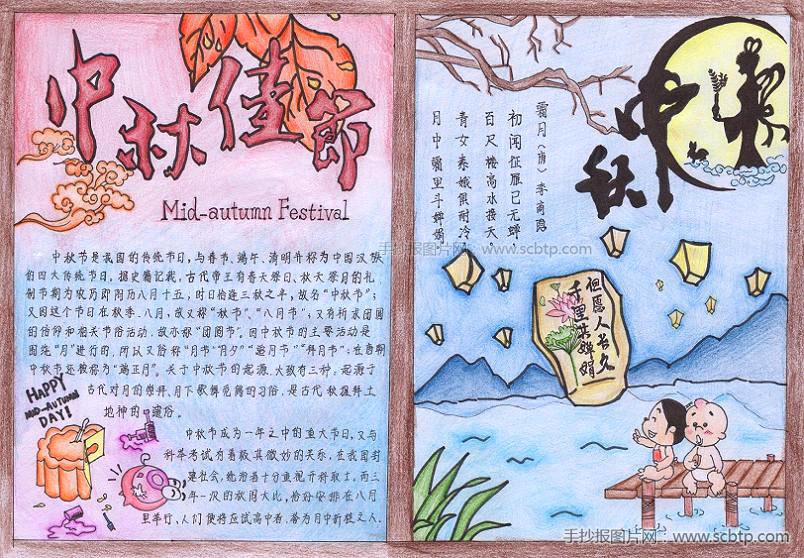 中秋佳節
Mid-autumn Festival
中秋节是我国的传统节日,与春节、端午、清明并称为中国汉族
的四大传统节日。据史籍记载,古代帝王有春天祭日、秋天祭月的礼
制节期为农历即阴历八月十五,时日恰逢三秋之半,故名“中秋节”;
又因这个节日在秋季、八月,故又称“秋节”、“八月节”;又有祈求团圆
的信仰和相关节俗活动,故亦称“团圆节”。因中秋节的主要活动是
围绕“月”进行的,所以又俗称“月节”“月夕”“追月节”“拜月节”;在唐朝
中秋节还被称为“端正月”。关于中秋节的起源,大致有三种:起源于
古代对月的崇拜、月下歌舞觅偶的习俗,是古代秋报拜土
地神的遗俗。
HAPPY
MID-AUTUMN
DAY!
中秋节成为一年之中的重大节日,又与
科举考试有着极其微妙的关系。在我国封
建社会,统治者十分重视开科取士,而三
年一次的秋闱大比,恰好安排在八月
里举行,人们便将应试高中者,誉为月中折桂之人。
中秋
霜月(唐)李商隐
初闻征雁已无蝉,
百尺楼高水接天。
青女素娥俱耐冷,
月中霜里斗婵娟。
但愿人长久
千里共婵娟
手抄报图片网:www.scbtp.com
手抄报图片网:www.scbtp.com